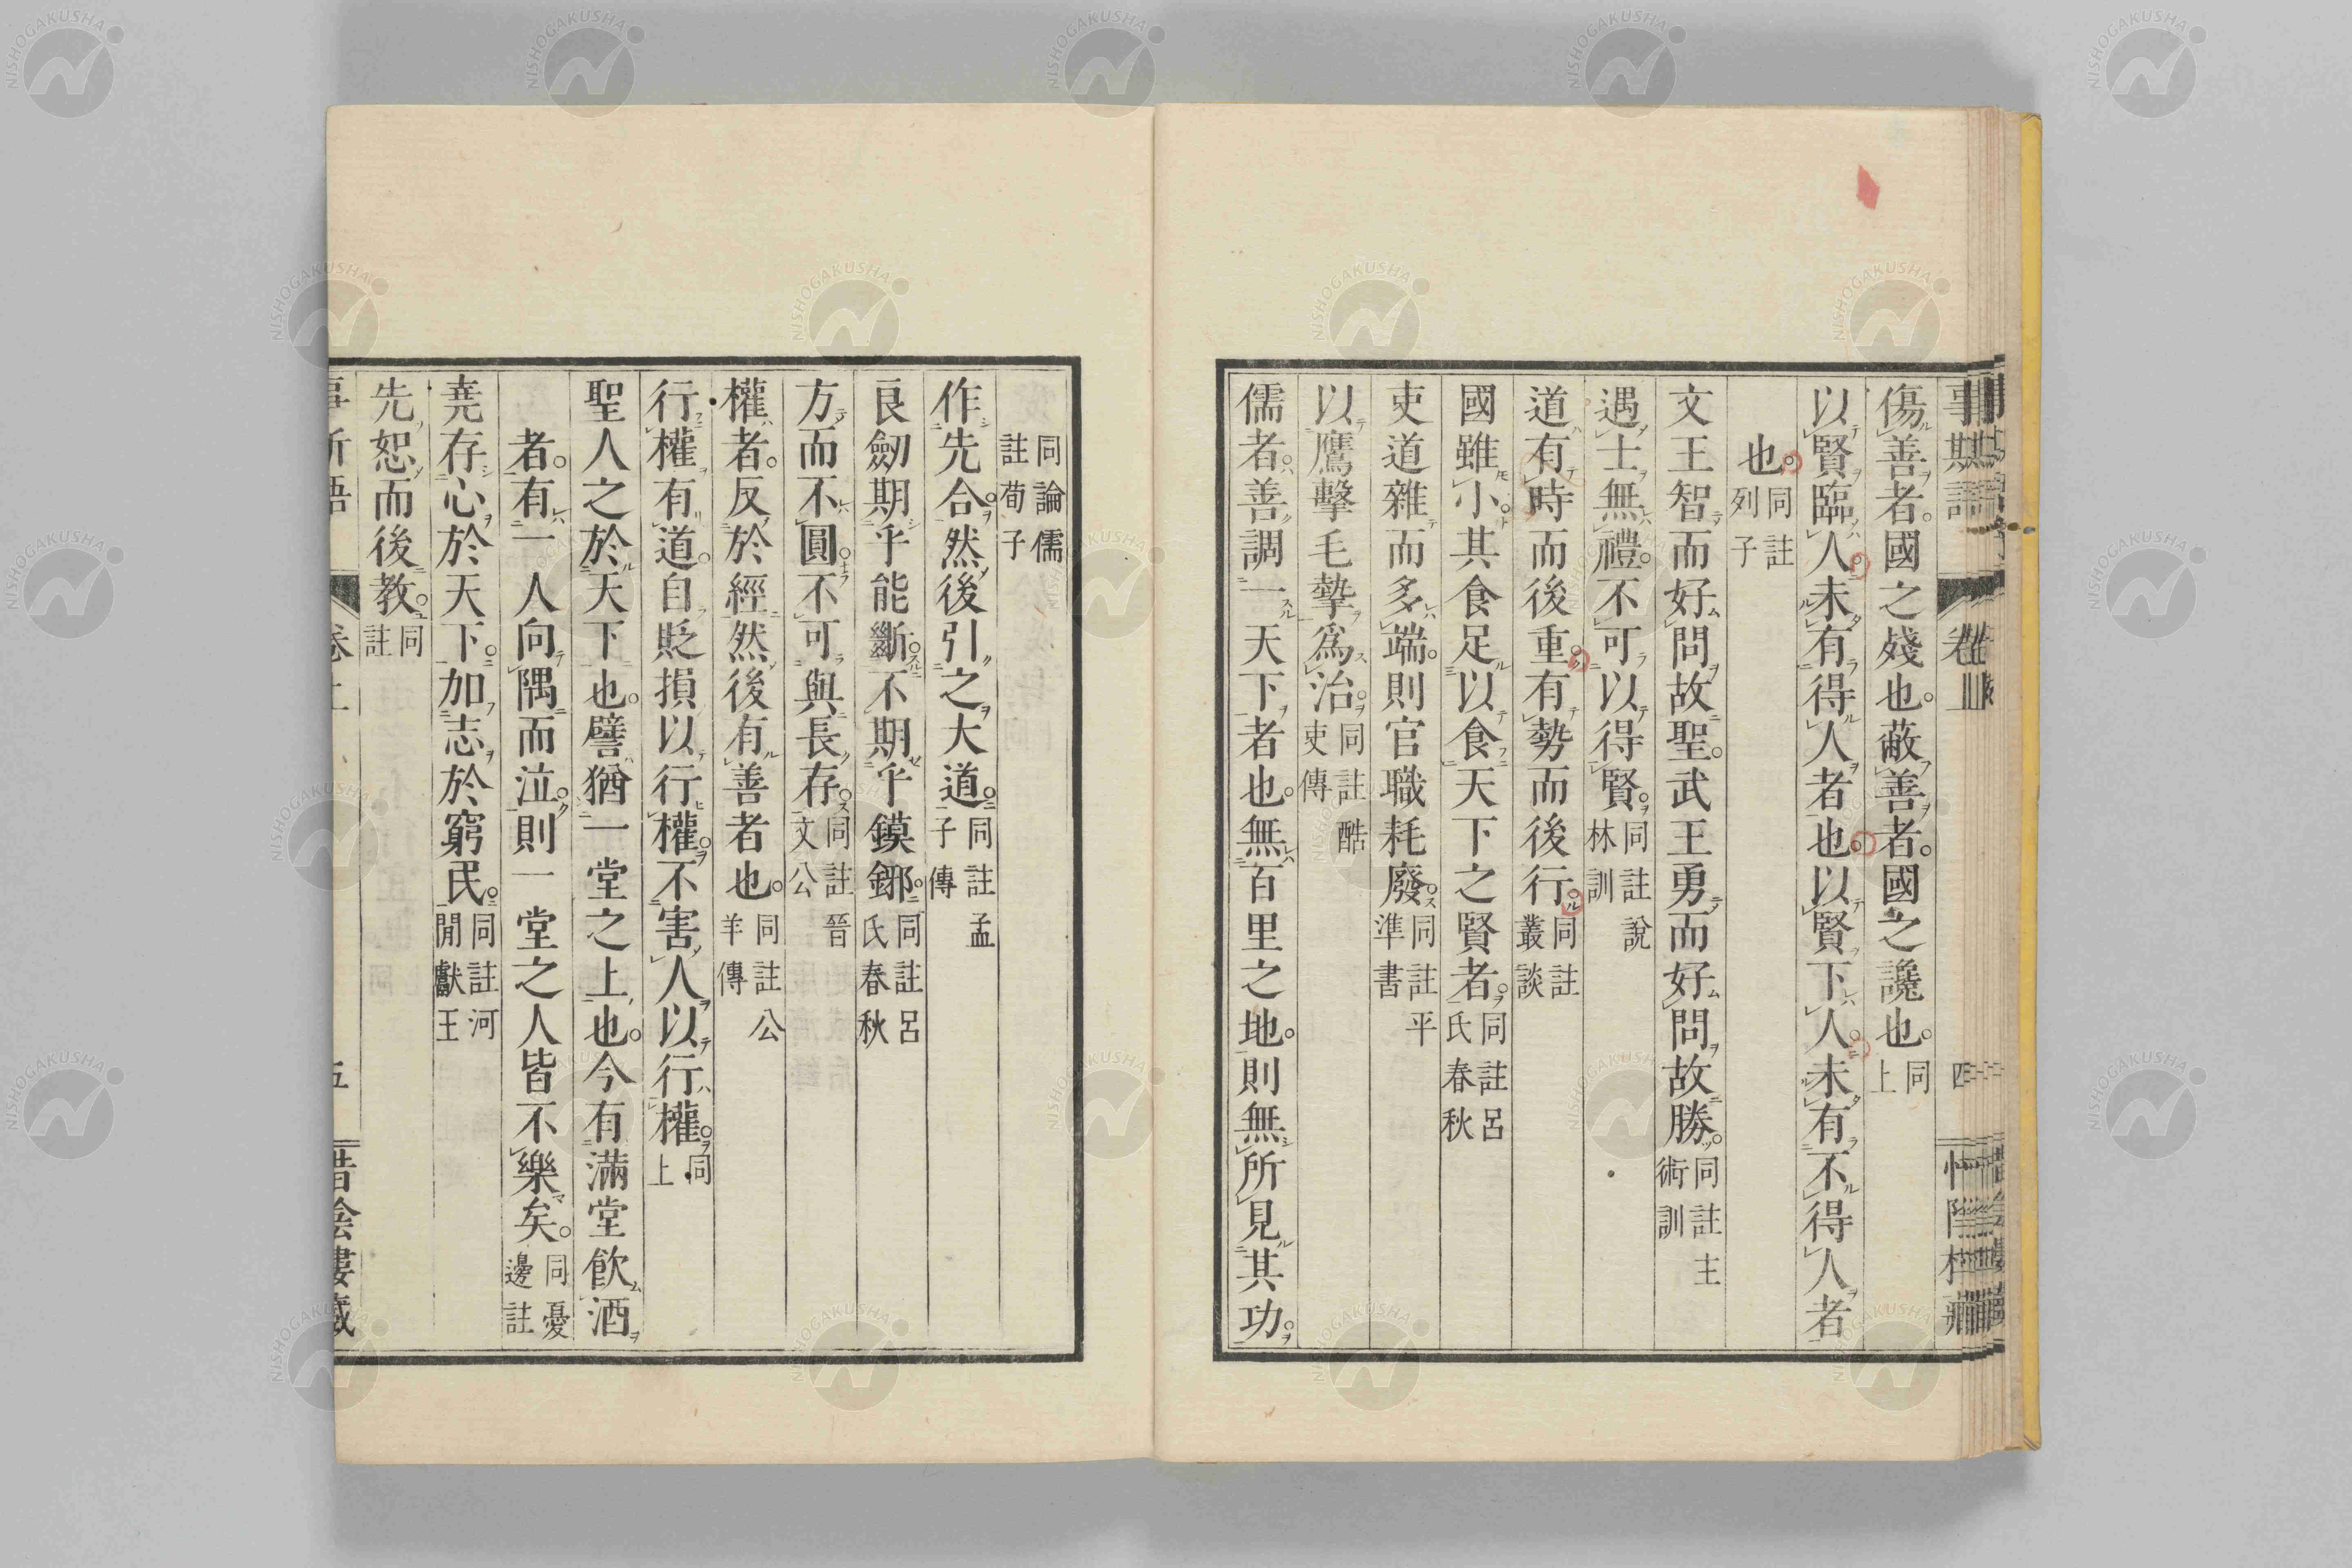 傷善者。國之殘也。蔽善者。國之讒也。同上
以賢臨人未有得人者也以賢下人未有不得人者
也。同註列子
文王智而好問故聖。武王勇而好問故勝。同註主術訓
遇士無禮。不可以得賢。同註說林訓
道有時而後重。有勢而後行。同註叢談
國雖小其食足以食天下之賢者。同註呂氏春秋
吏道雜而多端。則官職耗廢。同註平準書
以鷹擊毛摯爲治。同註酷吏傳
儒者。善調一天下者也。無百里之地。則無所見其功。
同論儒註荀子
作先合。然後引之大道。同註孟子傳
良劒期乎能斷。不期乎鏌鋣。同註呂氏春秋
方而不圓。不可與長存。同註晉文公
權者。反於經然後有善者也。同註公羊傳
行權有道。自貶損以行權。不害人以行權。同上
聖人之於天下也。譬猶一堂之上也。今有滿堂飮酒
者。有一人向隅而泣。則一堂之人皆不樂矣。同憂邊註
堯存心於天下。加志於窮民。同註河閒獻王
先恕而後教。同註
卷上
五